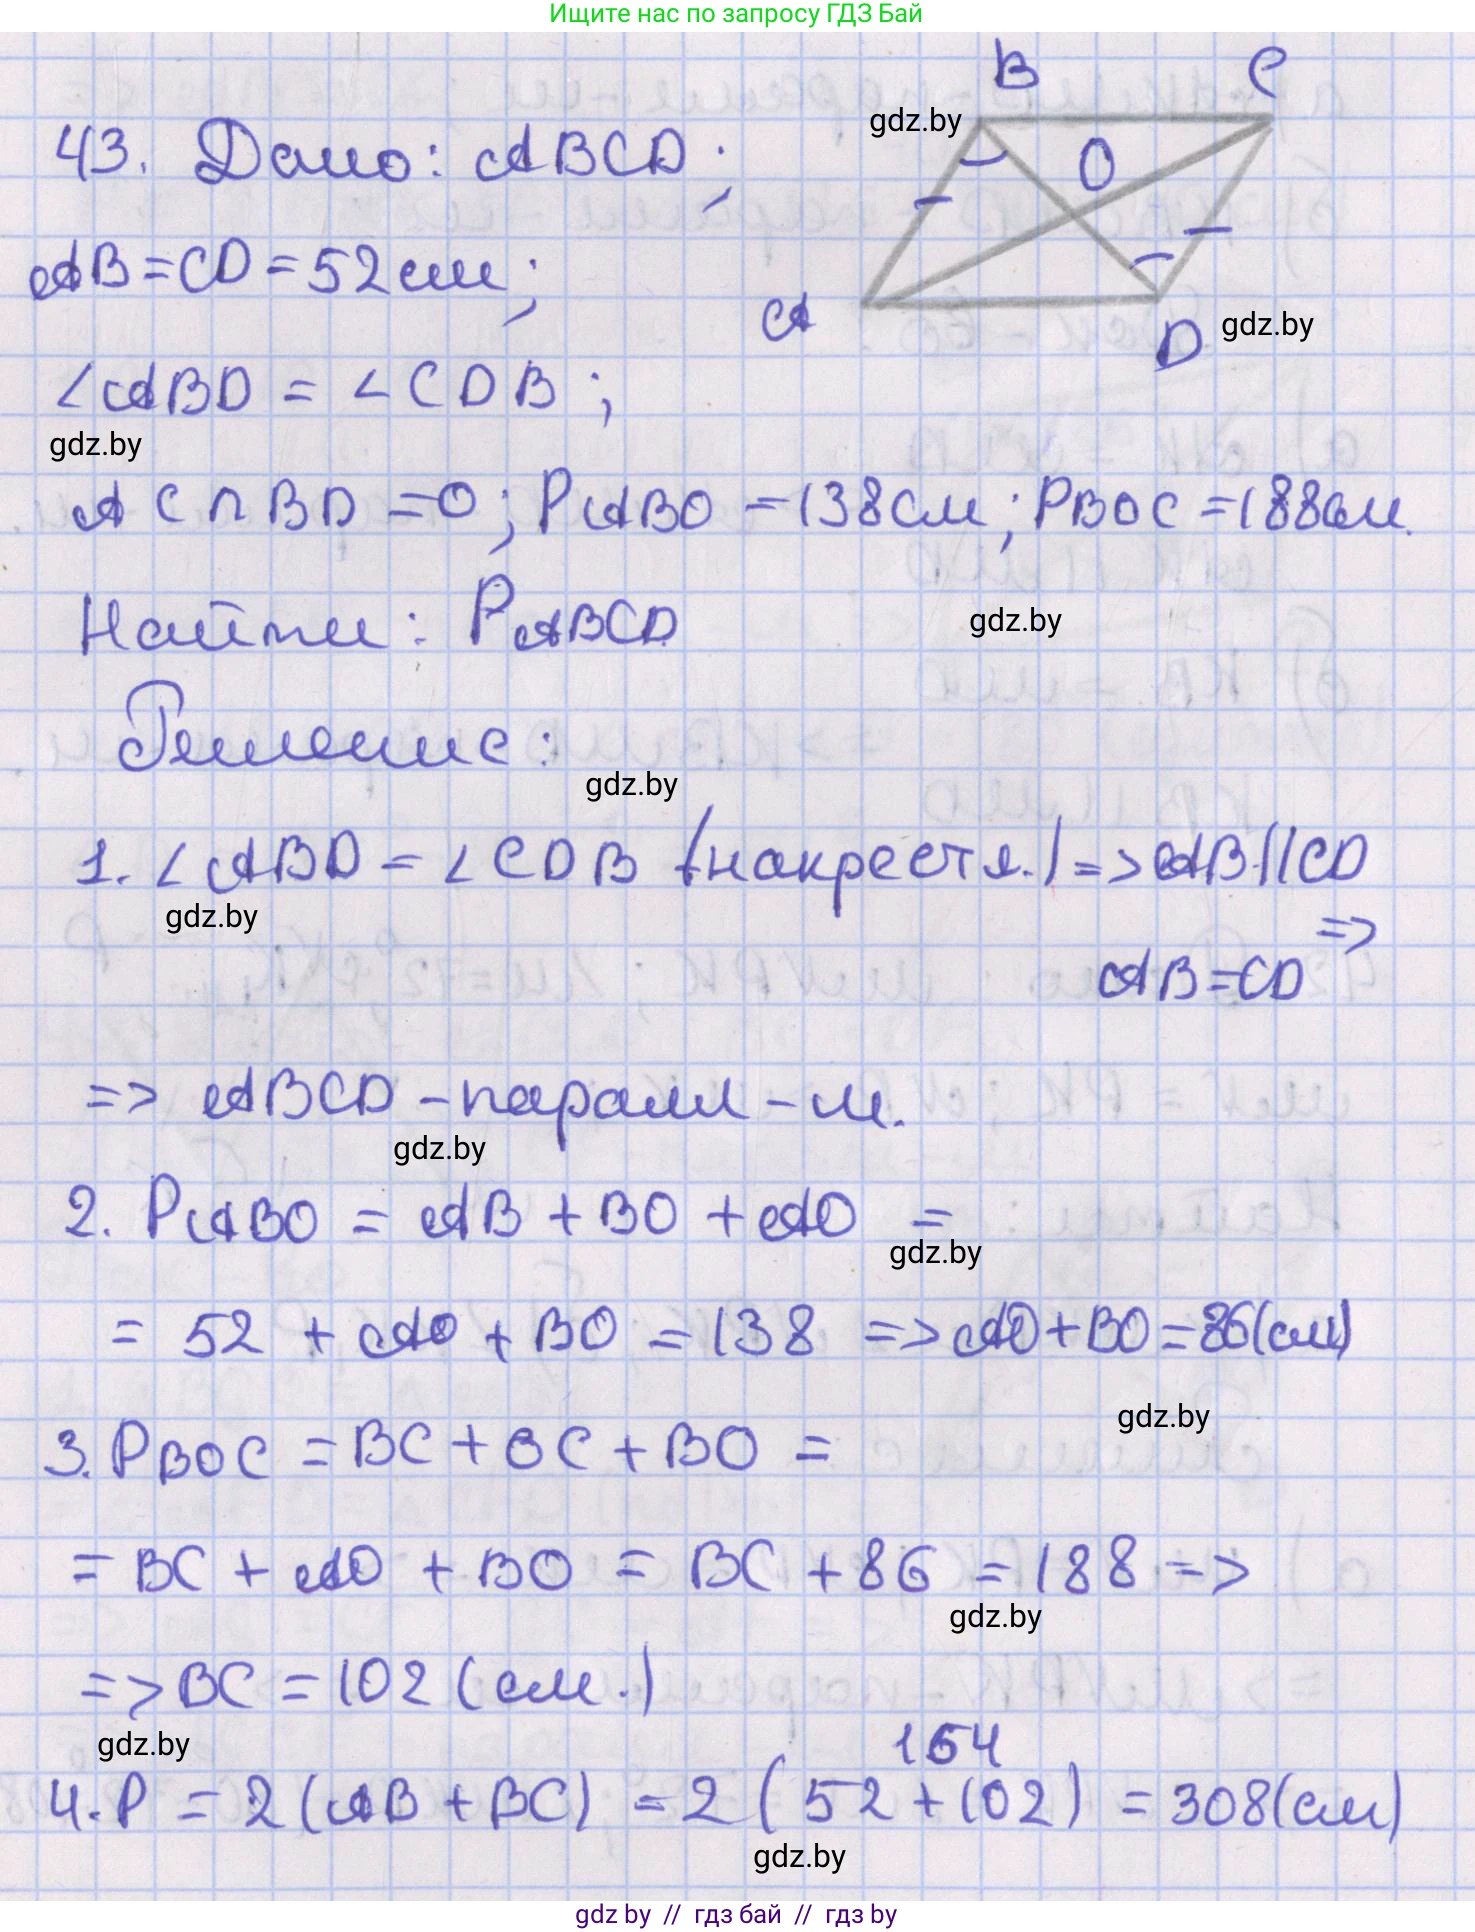 Ищите нас по запросу ГДЗ Бай
B C
43. Дано: ABCD;
gdz.by
O
AB = CD = 52 см;
A
D
gdz.by
∠ABD = ∠CDB;
gdz.by
AC ∩ BD = O; PABO = 138 см; PBOC = 188 см.
Найти: PABCD
gdz.by
Решение:
gdz.by
1. ∠ABD = ∠CDB (накрест л.) => AB || CD
gdz.by
=>
AB = CD
=> ABCD - паралл-м.
gdz.by
2. PABO = AB + BO + AO =
gdz.by
= 52 + AO + BO = 138 => AO + BO = 86 (см)
gdz.by
3. PBOC = BC + OC + BO =
= BC + AO + BO = BC + 86 = 188 =>
gdz.by
=> BC = 102 (см.)
gdz.by
154
4. P = 2 (AB + BC) = 2 (52 + 102) = 308 (см)
gdz.by
gdz by // гдз бай // гдз by